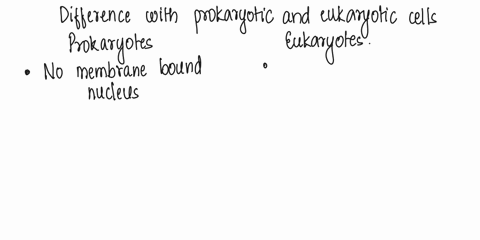 Difference with prokaryotic and eukaryotic cells
Prokaryotes Eukaryotes.
• No membrane bound •
nucleus